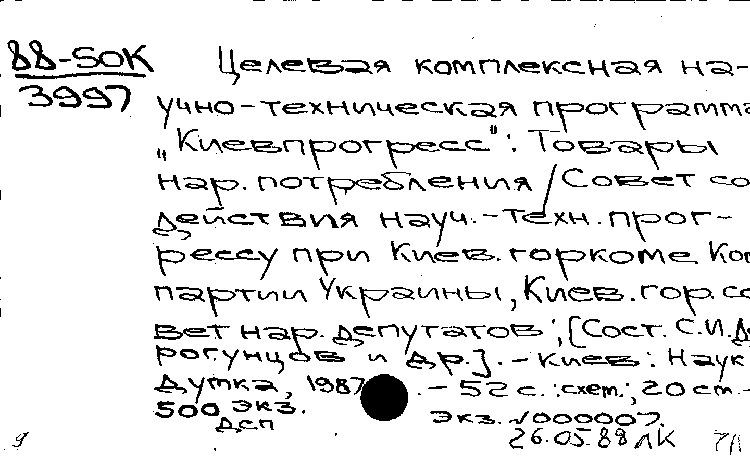 88-50К
3997
Целевая комплексная на-
учно-техническая программа
„Киевпрогресс": Товары
нар. потребления / Совет со
действия науч.-техн. прог-
рессу при Киев. горкоме Ком
партии Украины, Киев. гор. со
вет нар. депутатов; [Сост. С.И. До
рогунцов и др.]. - Киев: Наук
думка, 1987. - 52 с.: схем.; 20 см. -
500 экз.
ДСП
Экз. №000007.
26.05.88 ЛК